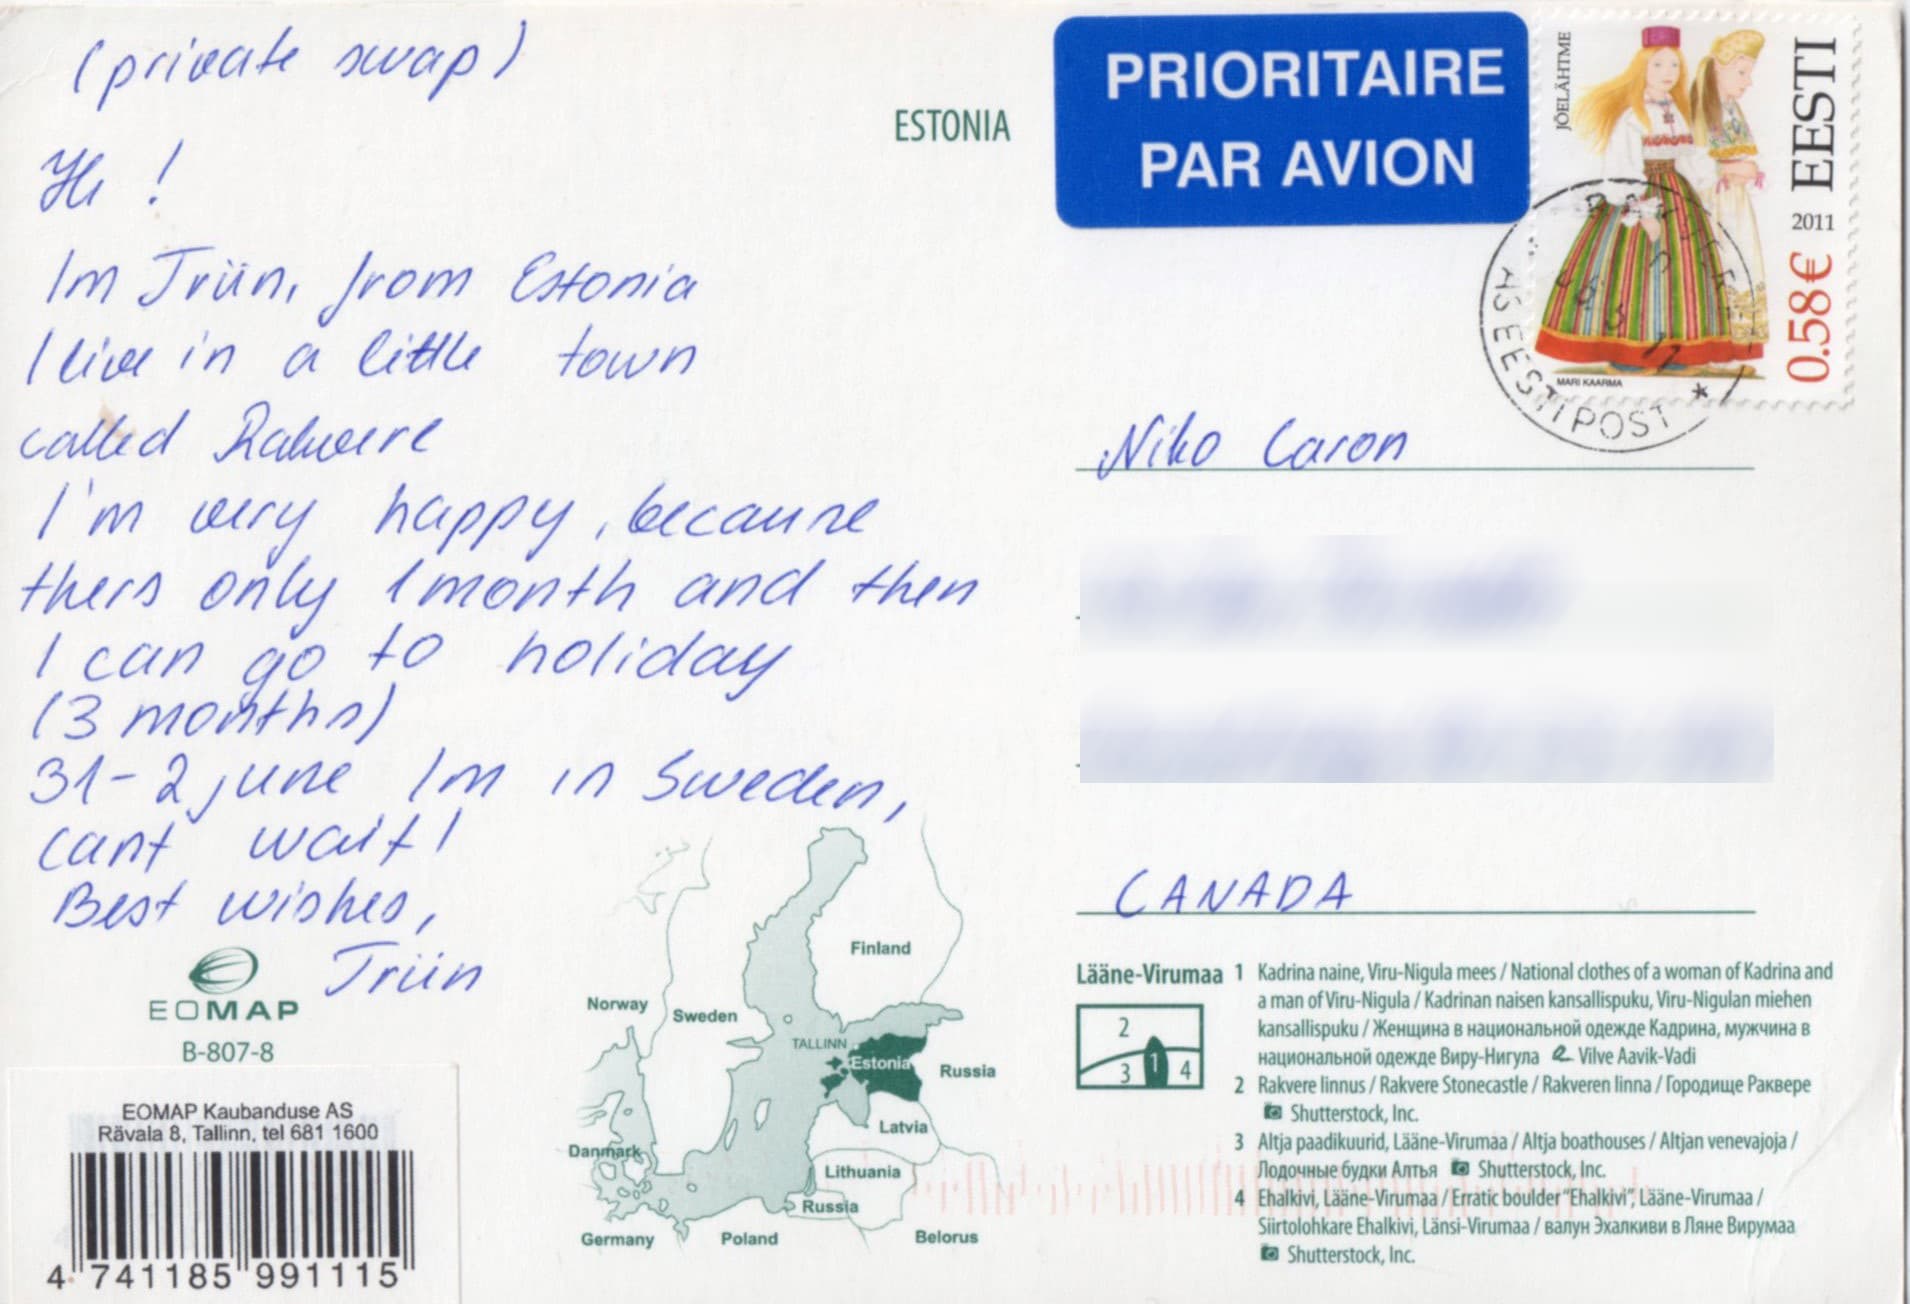 (private swap)
Hi!
Im Triin, from Estonia
I live in a little town
called Rakvere
I'm very happy, because
thers only 1 month and then
I can go to holiday
(3 months)
31-2 june Im in Sweden,
cant wait!
Best wishes,
Triin
EOMAP
B-807-8
EOMAP Kaubanduse AS
Rävala 8, Tallinn, tel 681 1600
4 741185 991115
ESTONIA
PRIORITAIRE
PAR AVION
JÕELÄHTME
EESTI
2011
0.58€
MARI KAARMA
AS EESTI POST *
Niko Caron
CANADA
Finland
Norway
Sweden
TALLINN
Estonia
Russia
Latvia
Danmark
Lithuania
Russia
Germany
Poland
Belorus
Lääne-Virumaa
2
3 1 4
1 Kadrina naine, Viru-Nigula mees / National clothes of a woman of Kadrina and
a man of Viru-Nigula / Kadrinan naisen kansallispuku, Viru-Nigulan miehen
kansallispuku / Женщина в национальной одежде Кадрина, мужчина в
национальной одежде Виру-Нигула Vilve Aavik-Vadi
2 Rakvere linnus / Rakvere Stonecastle / Rakveren linna / Городище Раквере
Shutterstock, Inc.
3 Altja paadikuurid, Lääne-Virumaa / Altja boathouses / Altjan venevajoja /
Лодочные будки Алтья Shutterstock, Inc.
4 Ehalkivi, Lääne-Virumaa / Erratic boulder "Ehalkivi", Lääne-Virumaa /
Siirtolohkare Ehalkivi, Länsi-Virumaa / валун Эхалкиви в Ляне Вирумаа
Shutterstock, Inc.